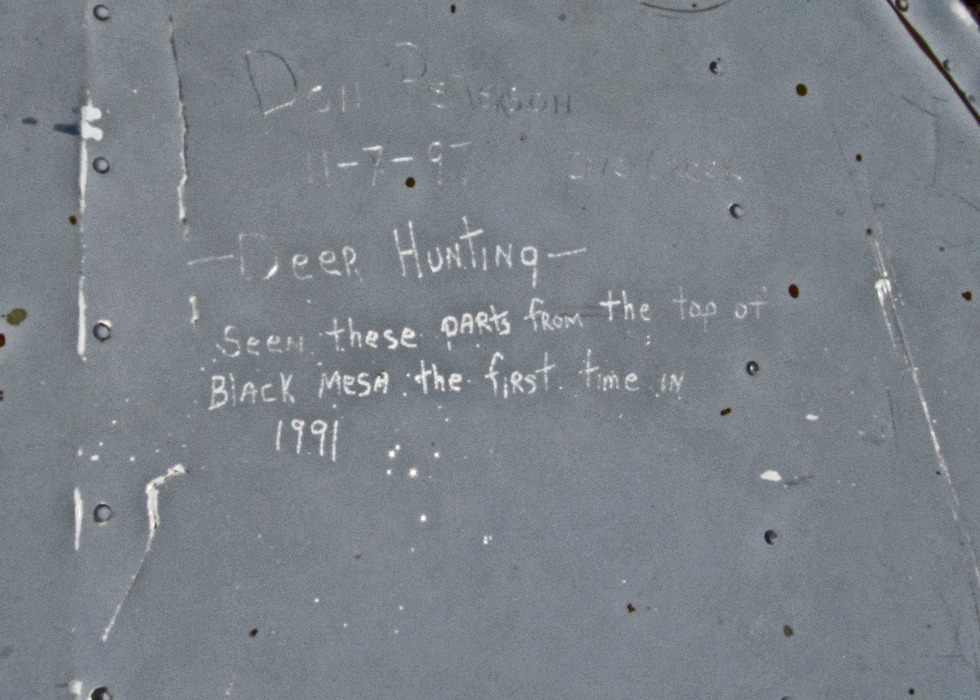 Don Peterson
11-7-97 Creek
—Deer Hunting—
Seen these parts from the top of
Black Mesa the first time in
1991